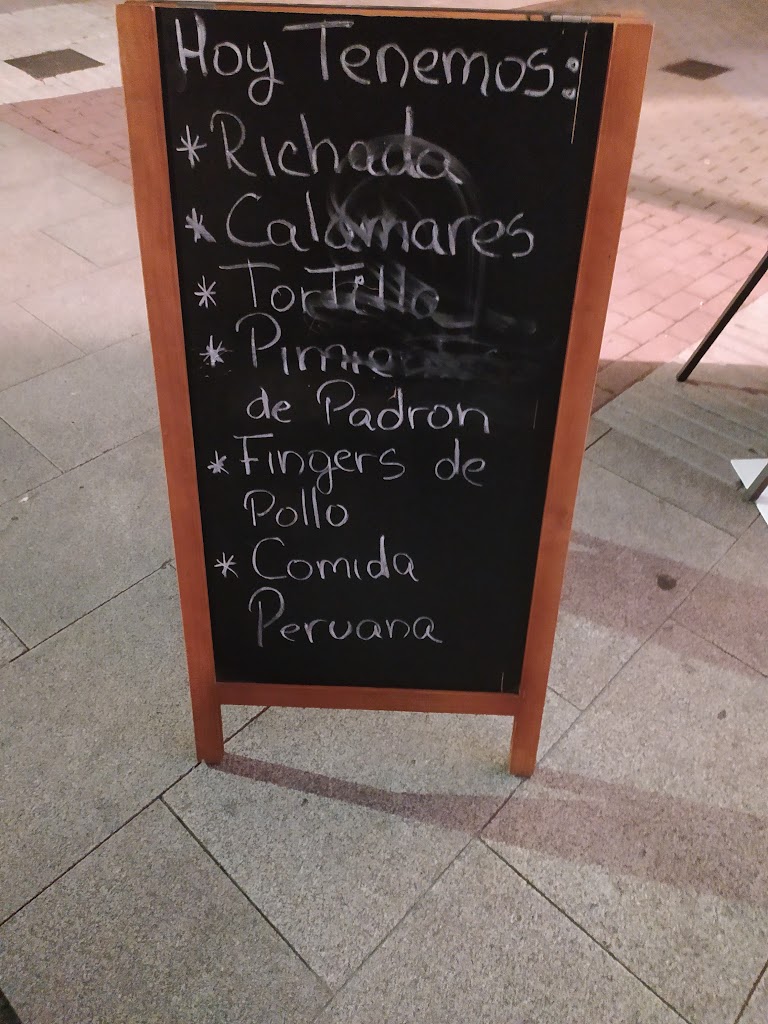 Hoy Tenemos:
* Richada
* Calamares
* Tortilla
* Pimientos
de Padron
* Fingers de
Pollo
* Comida
Peruana